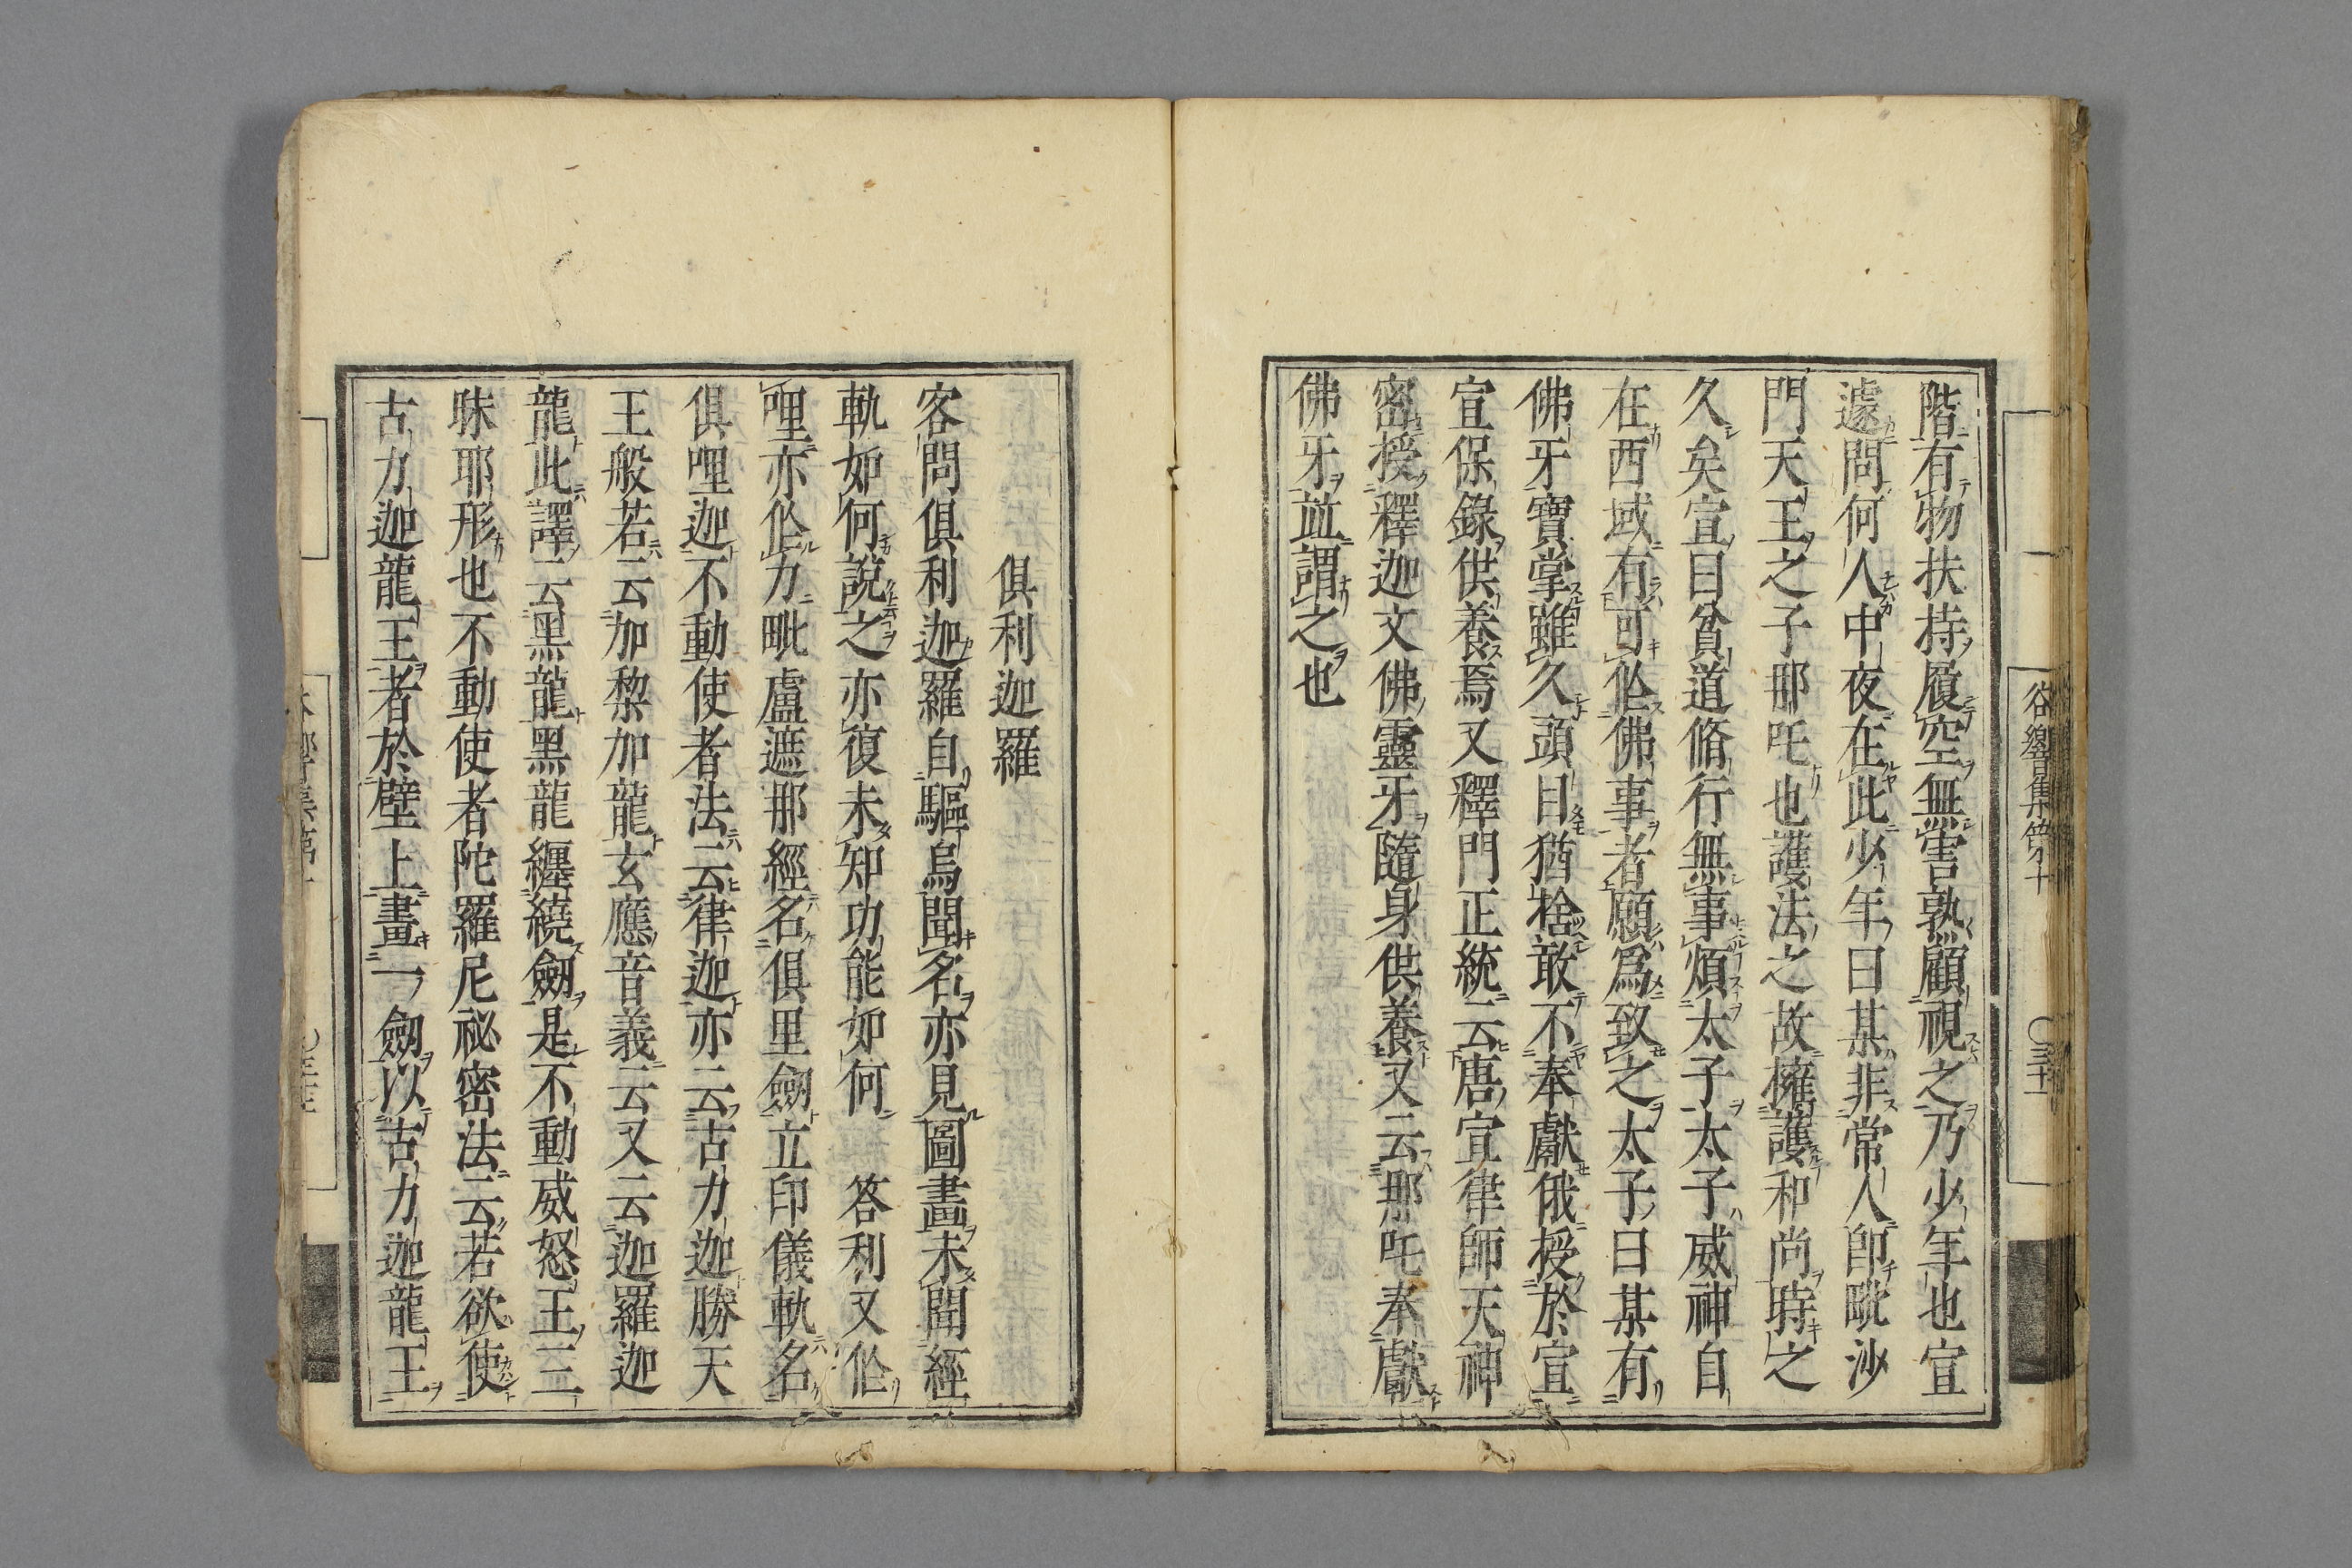 階有物扶持履空無害熟顧視之乃少年也宣
遽問何人中夜在此少年曰某非常人卽毗沙
門天王之子那吒也護法之故擁護和尚時之
久矣宣曰貧道脩行無事煩太子太子威神自
在西域有可作佛事者願爲致之太子曰某有
佛牙寶掌雖久頭目猶捨敢不奉獻俄授於宣
宣保錄供養焉又釋門正統云唐宣律師天神
密授釋迦文佛靈牙隨身供養又云那吒奉獻
佛牙竝謂之也
俱利迦羅
客問俱利迦羅自驅烏聞名亦見圖畫未聞經
軌如何說之亦復未知功能如何　答利又作
哩亦作力毗盧遮那經名俱里劒立印儀軌名
俱哩迦不動使者法云律迦亦云古力迦勝天
王般若云加黎加龍玄應音義云又云迦羅迦
龍此譯云黑龍黑龍纏繞劒是不動威怒王三
昧耶形也不動使者陀羅尼祕密法云若欲使
古力迦龍王者於壁上畫一劒以古力迦龍王
谷響集第十
〇三十一